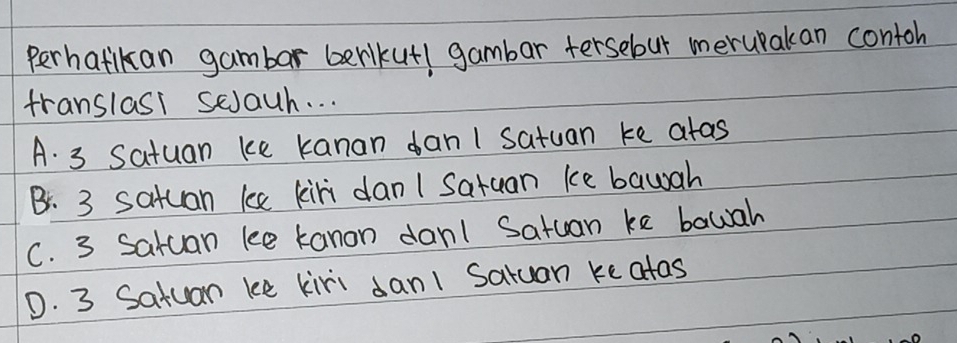 Perhatikan gambar berikut! gambar tersebut merupakan contoh
translasi sejauh...
A. 3 satuan ke kanan dan 1 satuan ke atas
B. 3 satuan ke kiri dan 1 satuan ke bawah
C. 3 satuan ke kanan dan 1 satuan ke bawah
D. 3 satuan ke kiri dan 1 satuan ke atas